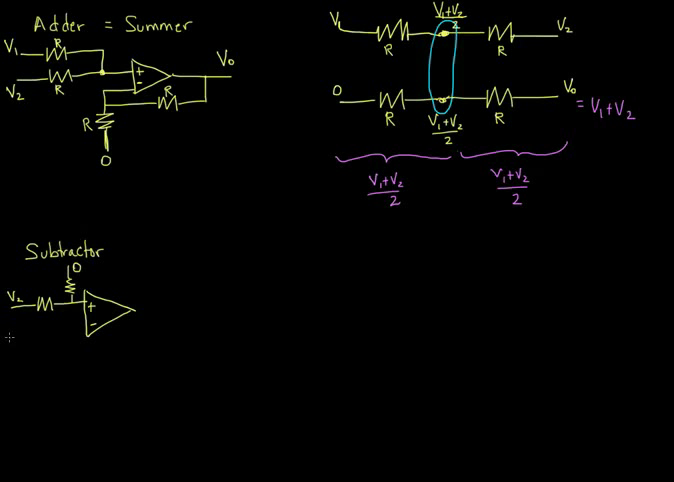 Adder = Summer
V₁ R
V₂ R
+
-
R
V₀
R
0
V₁ R (V₁+V₂)/2 R V₂
0 R (V₁+V₂)/2 R V₀ = V₁+V₂
(V₁+V₂)/2 (V₁+V₂)/2
Subtractor
0
V₂
+
-